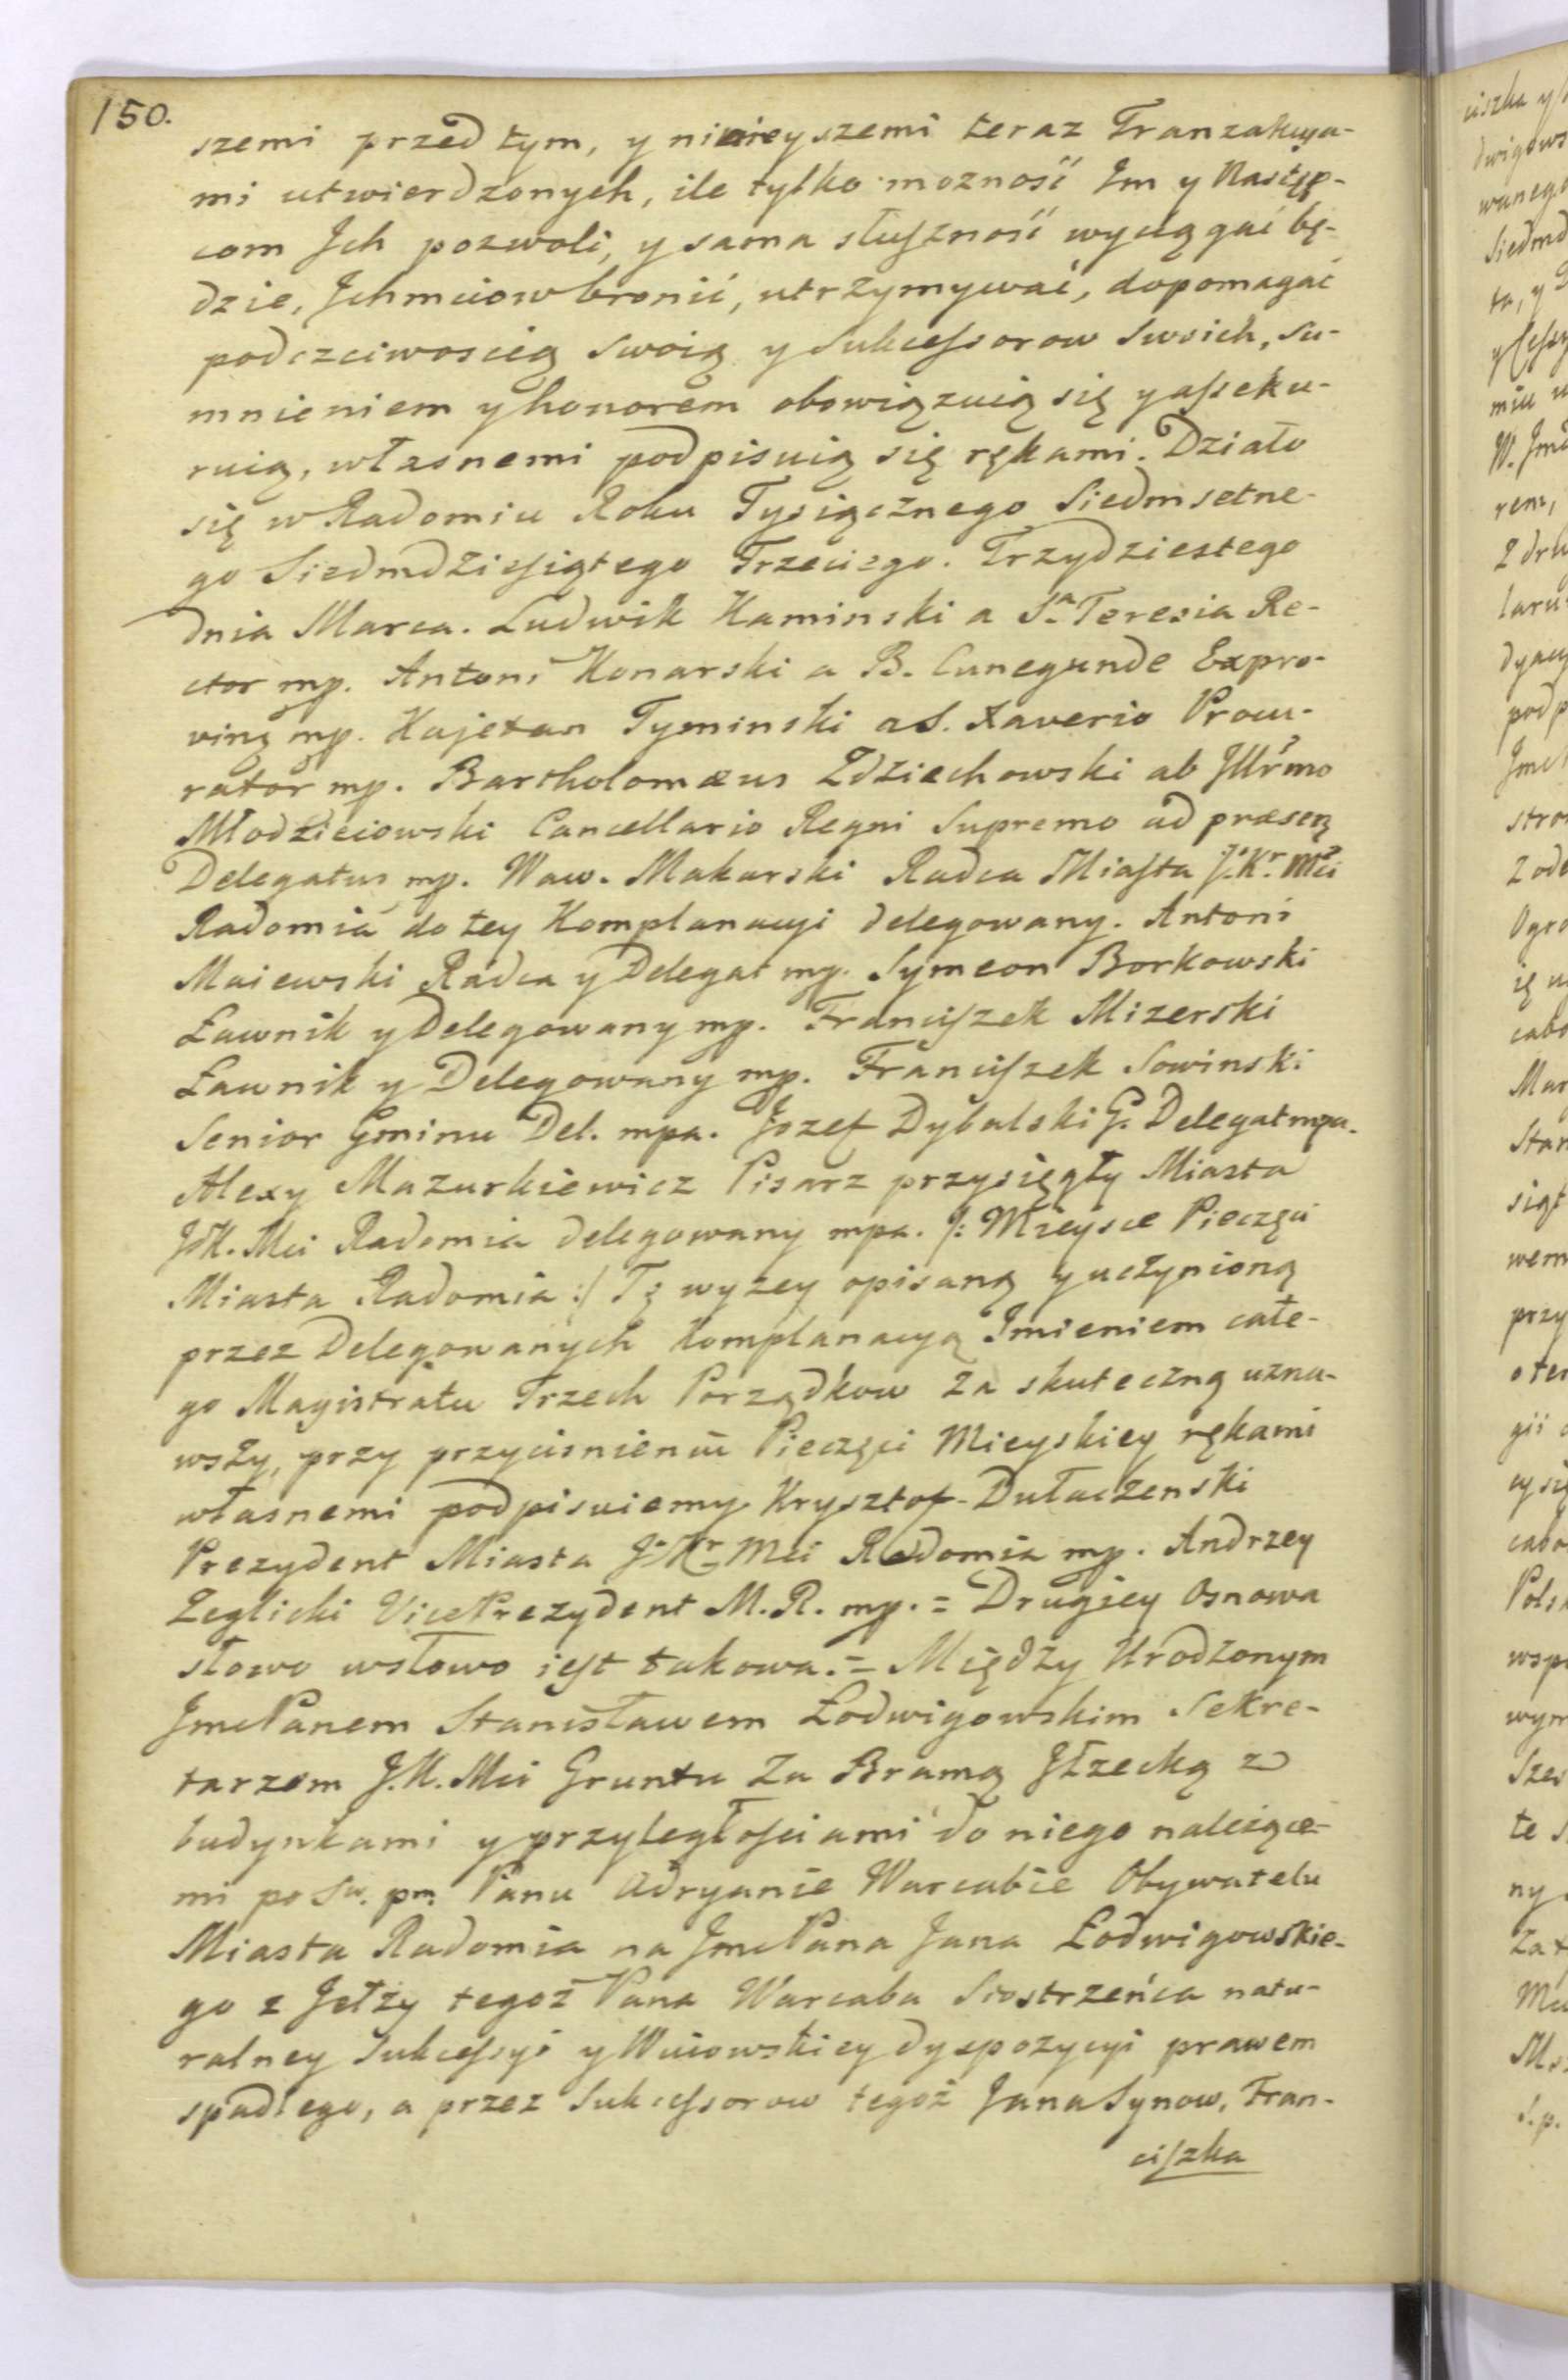 150.
szemi przed tym, y ninieyszemi teraz Tranzakcya-
mi utwierdzonych, ile tylko możność Im y Następ-
com Jch pozwoli, y sama słuſzność wyciągać bę-
dzie, Jchmciow bronić, utrzymywać, dopomagać
podczciwoscią Swoią y Sukceſsorow Swoich, Su-
mnieniem y honorem obowiązuią się y aſseku-
ruią, własnemi podpisuią się rękami. Działo
się w Radomiu Roku Tysiącznego Siedmsetne-
go Siedmdzieſiątego Trzeciego. Trzydziestego
dnia Marca. Ludwik Kaminski a Sa Teresia Re-
ctor mp. Antoni Konarski a B. Cunegunde Expro-
vinę mp. Kajetan Tyminski a S. Xaverio Procu-
rator mp. Bartholomæus Zdziechowski ab Jllrmo
Młodzieiowski Cancellario Regni Supremo ad præsenę
Delegatus mp. Waw. Makarski Radca Miaſta J. Kr. Mci
Radomia do tey Komplanacyi delegowany. Antoni
Maiewski Radca y Delegat mp. Symeon Borkowski
Ławnik y Delegowany mp. Franciſzek Mizerski
Ławnik y Delegowany mp. Franciſzek Sowinski
Senior Gminu Del. mpa. Jozef Dybalski G. Delegat mpa.
Alexy Mazurkiewicz Pisarz przysięgły Miasta
JK. Mci Radomia delegowany mpa. /: Mieysce Pieczęci
Miasta Radomia :/ Tę wyzey opisaną y uczynioną
przez Delegowanych Komplanacyą Imieniem całe-
go Magistratu Trzech Porządkow za skuteczną uzna-
wszy, przy przyciśnieniu Pieczęci Mieyskiey rękami
własnemi podpisuiemy Krysztof Dułaczenski
Prezydent Miasta J. Kr. Mci Radomia mp. Andrzey
Zeglicki VicePrezydent M. R. mp. = Drugiey Osnowa
słowo wsłowo ieſt takowa. = Między Urodzonym
JmcPanem Stanisławem Łodwigowskim Sekre-
tarzem J.K. Mci Gruntu Za Bramą Jłzecką z
budynkami y przyległoſciami do niego należące-
mi po Sw. pm. Panu Adryanie Warcabie Obywatelu
Miasta Radomia na JmcPana Jana Łodwigowskie-
go z Jełży tegoż Pana Warcaba Siostrzeńca natu-
ralney Sukceſsyi y Wuiowskiey dyspozycyi prawem
spadłego, a przez Sukceſsorow tegoż Jana Synow, Fran-
ciſzka